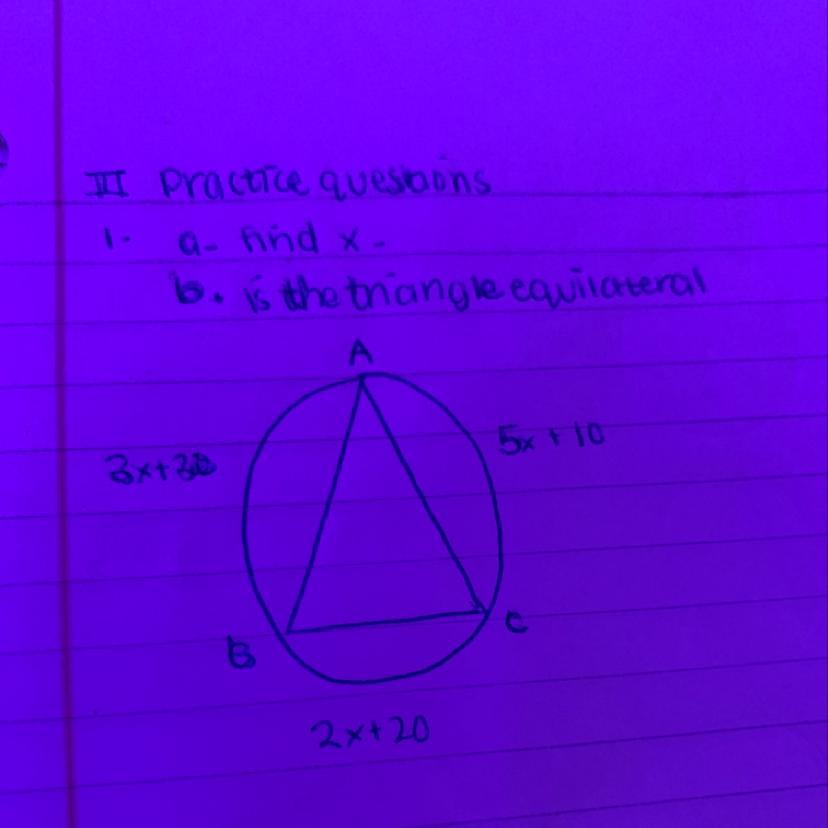 III Practice questions
1. a- find x-
b. is the triangle equilateral
A
5x + 10
3x+30
B
C
2x+20